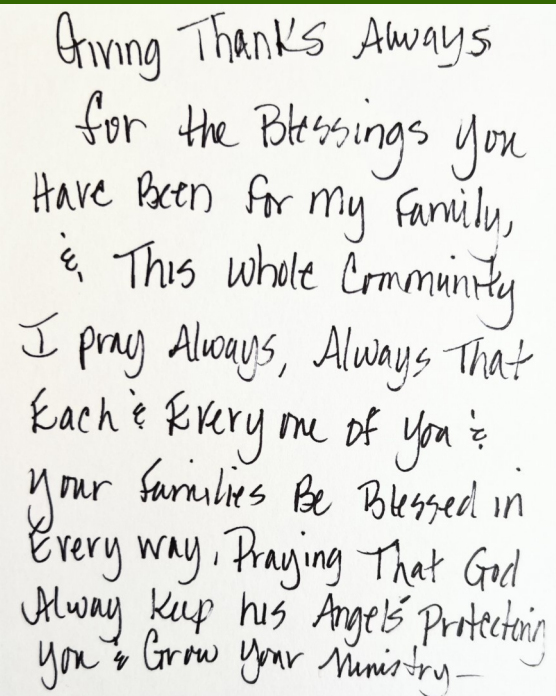 Giving Thanks Always
for the Blessings you
Have Been for my Family,
&, This whole Community
I pray Always, Always That
Each & Every one of you &
your families Be Blessed in
Every way, Praying That God
Alway Keep his Angels' Protecting
you & Grow Your Ministry—